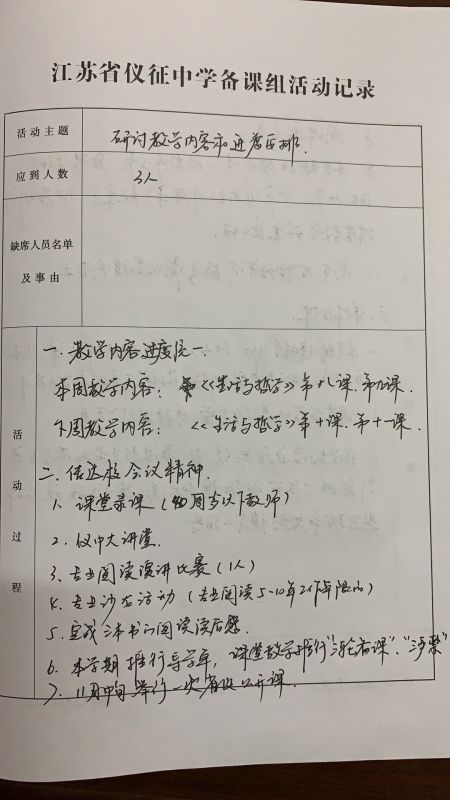 江苏省仪征中学备课组活动记录
活动主题 研讨教学内容和进度安排.
应到人数 3人
缺席人员名单及事由
活动过程
一.教学内容进度统一.
本周教学内容：《生活与哲学》第八课.第九课.
下周教学内容：《生活与哲学》第十课.第十一课.
二.传达校会议精神.
1.课堂录课（40周岁以下教师）
2.仪中大讲堂.
3.专业阅读演讲比赛（1人）
4.专业沙龙活动（专业阅读5-10年
5.完成三本书的阅读读后感.
6.本学期推行导学单，课堂教学推行
7.11月中旬举行一次省级公开课.